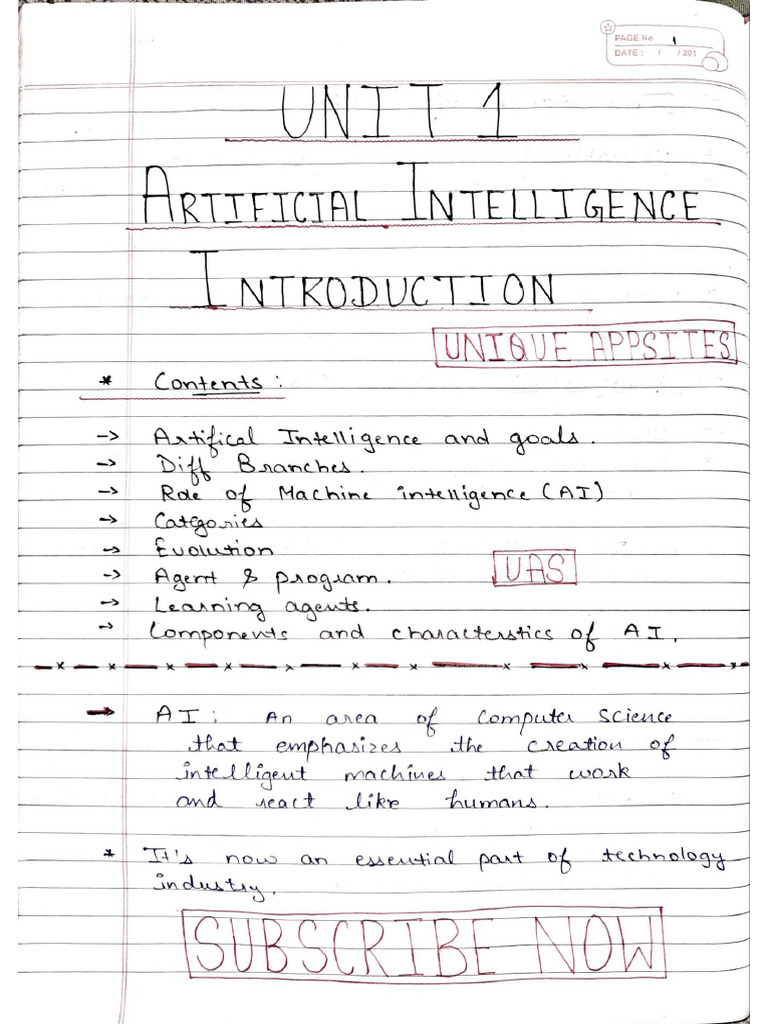 PAGE No 1
DATE : / / 201
UNIT 1
ARTIFICIAL INTELLIGENCE
INTRODUCTION
UNIQUE APPSITES
* Contents :
-> Artifical Intelligence and goals.
-> Diff Branches.
-> Role of Machine intelligence (AI)
-> Categories
-> Evolution
-> Agent & program.
UAS
-> Learning agents.
-> Components and characterstics of AI.
-> AI : An area of computer science
that emphasizes the creation of
intelligent machines that work
and react like humans.
* It's now an essential part of technology
industry.
SUBSCRIBE NOW